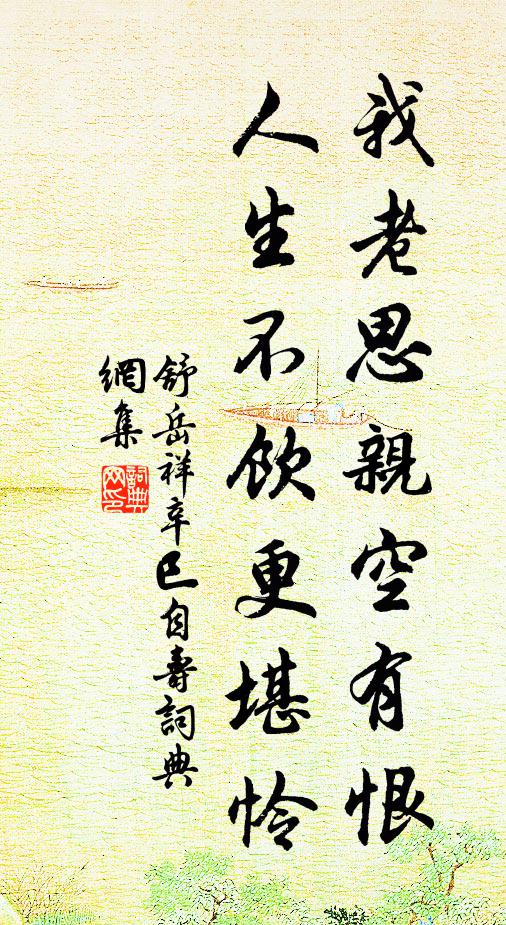 我老思親空有恨
人生不飲更堪憐
舒岳祥辛巳自壽詞典
網集
詞典
网印